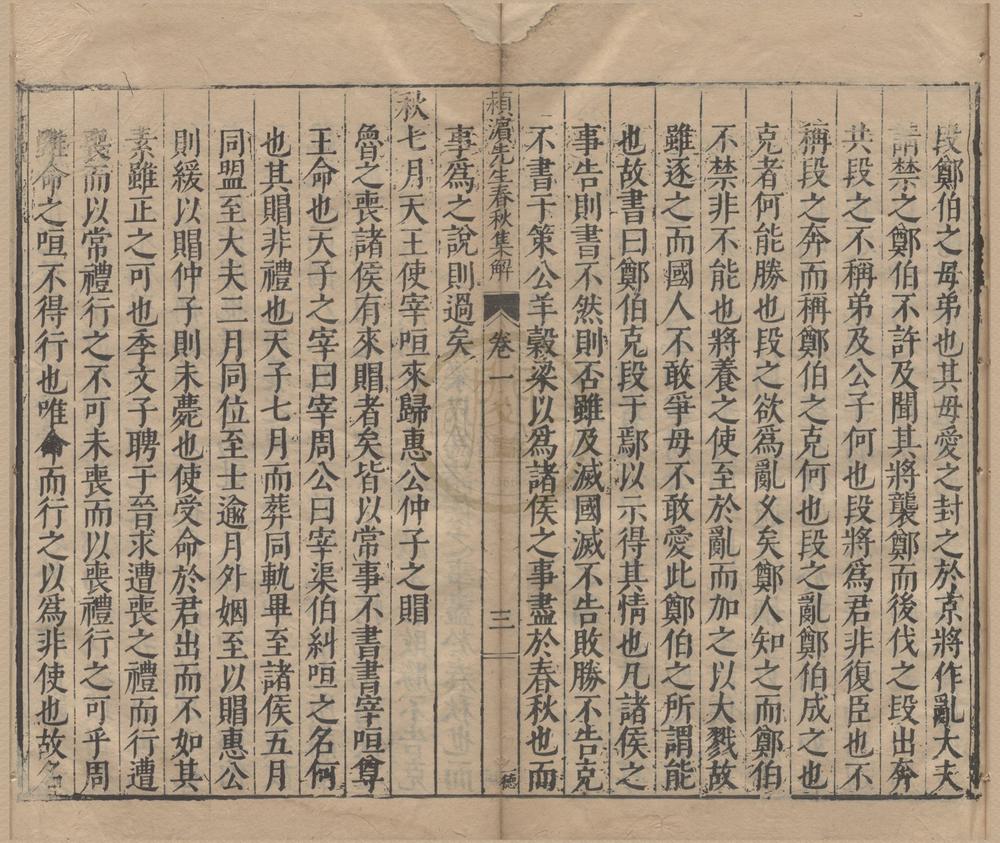 段鄭伯之母弟也其母愛之封之於京將作亂大夫
請禁之鄭伯不許及聞其將襲鄭而後伐之段出奔
共段之不稱弟及公子何也段將爲君非復臣也不
稱段之奔而稱鄭伯之克何也段之亂鄭伯成之也
克者何能勝也段之欲爲亂乆矣鄭人知之而鄭伯
不禁非不能也將養之使至於亂而加之以大戮故
雖逐之而國人不敢爭母不敢愛此鄭伯之所謂能
也故書曰鄭伯克段于鄢以示得其情也凡諸侯之
事告則書不然則否雖及滅國滅不告敗勝不告克
不書于策公羊穀梁以爲諸侯之事盡於春秋也而
事爲之說則過矣
潁濵先生春秋集解 卷一 三 德
秋七月天王使宰咺來歸惠公仲子之賵
魯之喪諸侯有來賵者矣皆以常事不書書宰咺尊
王命也天子之宰曰宰周公曰宰渠伯糾咺之名何
也其賵非禮也天子七月而葬同軌畢至諸侯五月
同盟至大夫三月同位至士逾月外姻至以賵惠公
則緩以賵仲子則未薨也使受命於君出而不如其
素雖正之可也季文子聘于晉求遭喪之禮而行遭
喪而以常禮行之不可未喪而以喪禮行之可乎周
雖命之咺不得行也唯命而行之以爲非使也故名